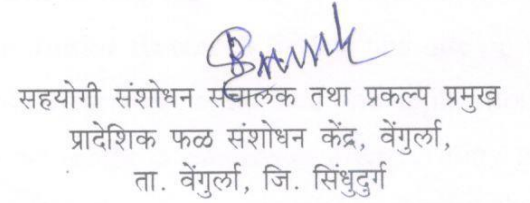 सहयोगी संशोधन संचालक तथा प्रकल्प प्रमुख
प्रादेशिक फळ संशोधन केंद्र, वेंगुर्ला,
ता. वेंगुर्ला, जि. सिंधुदुर्ग